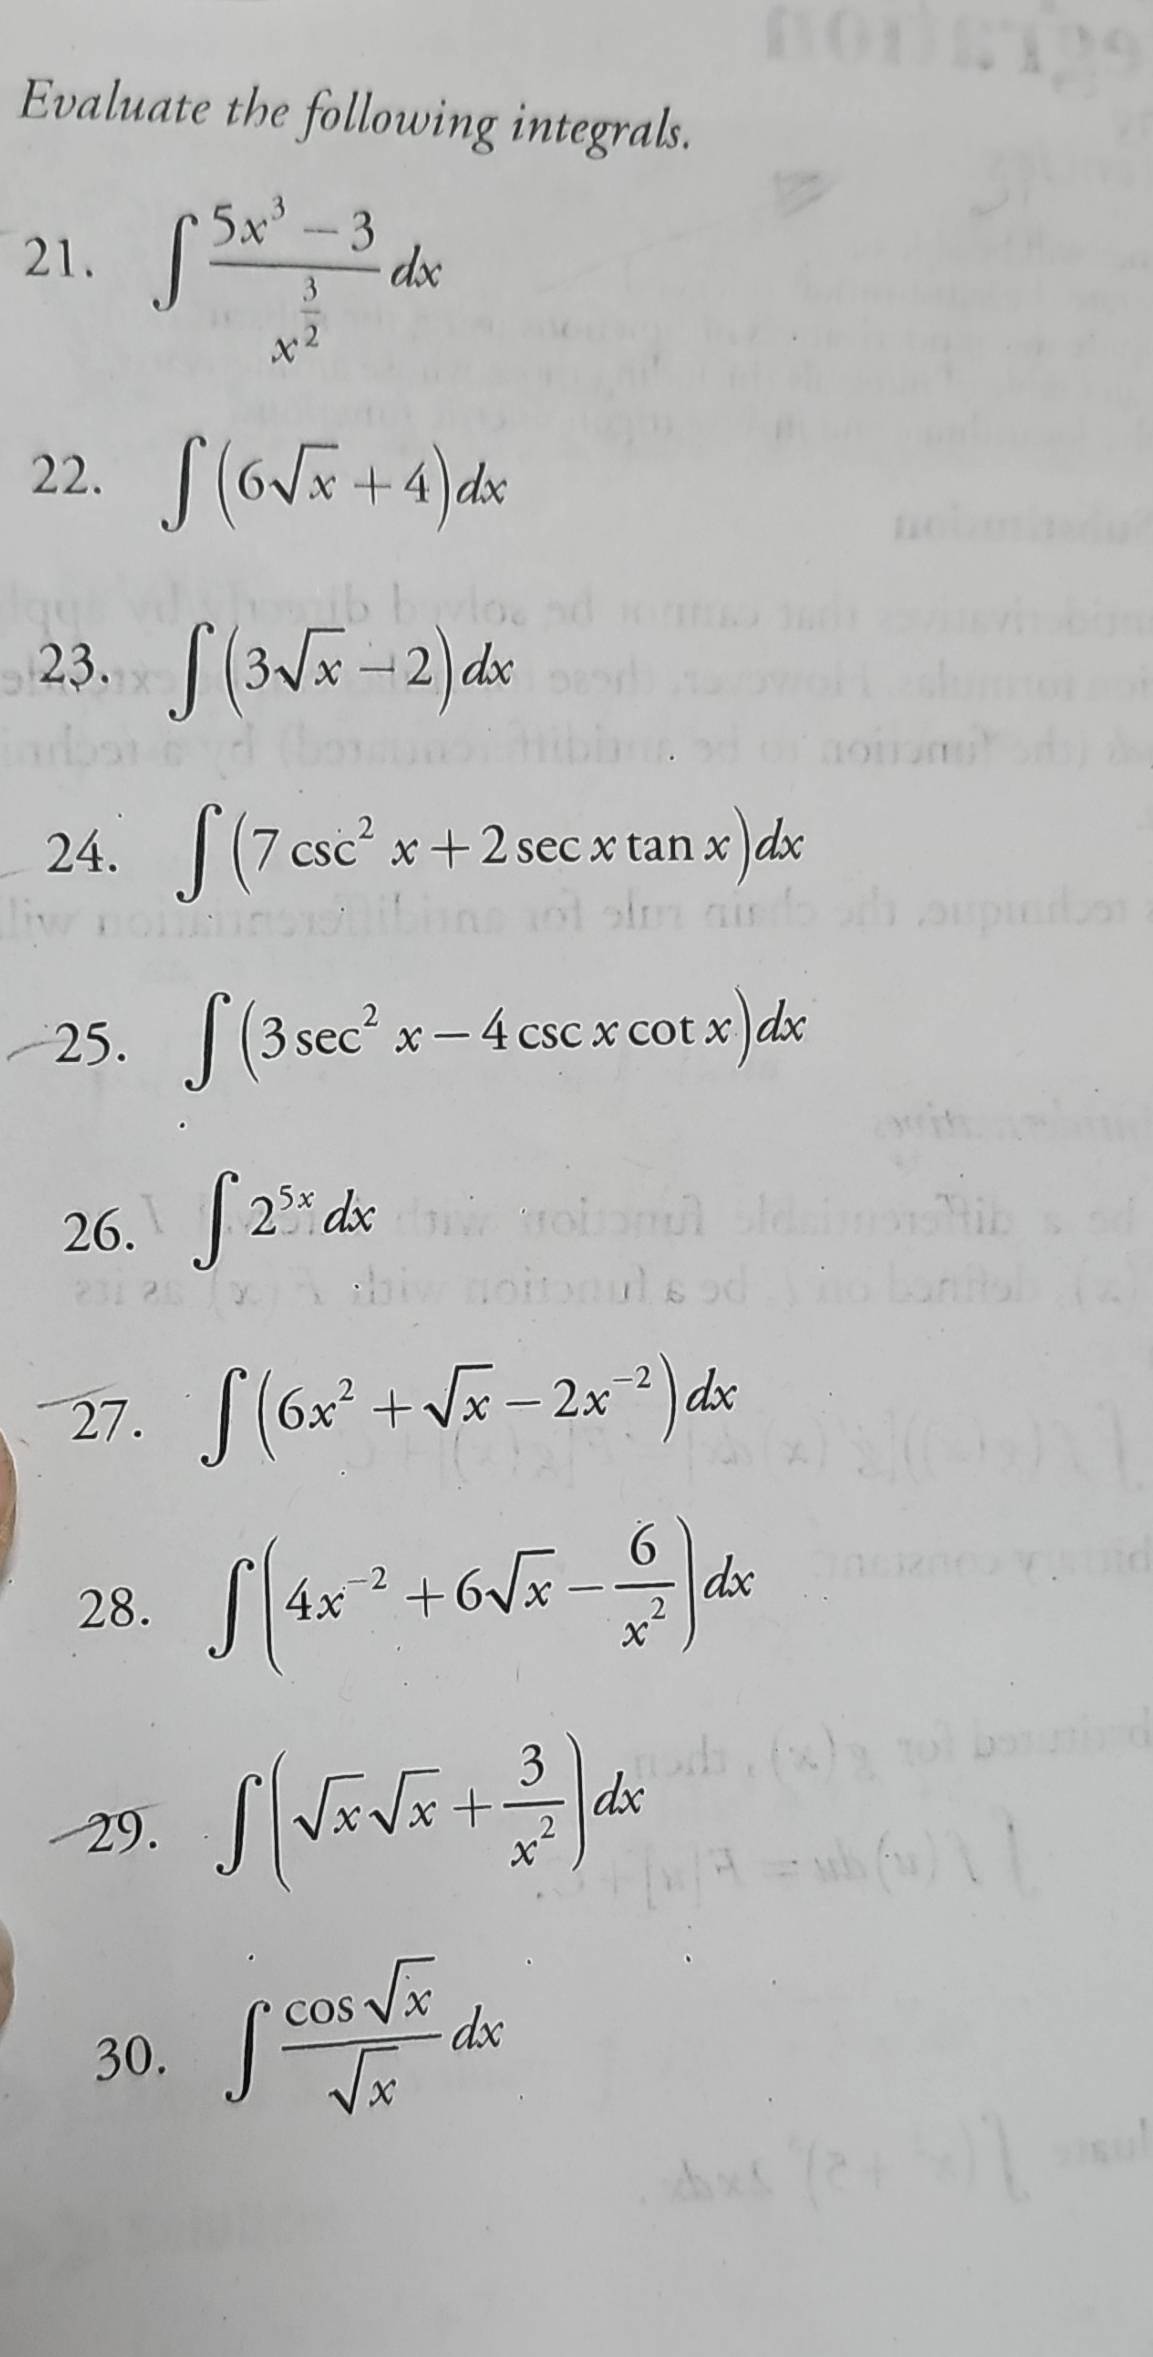 Evaluate the following integrals.
21. ∫ (5x³ − 3)/x^(3/2) dx
22. ∫ (6√x + 4) dx
23. ∫ (3√x − 2) dx
24. ∫ (7 csc² x + 2 sec x tan x) dx
25. ∫ (3 sec² x − 4 csc x cot x) dx
26. ∫ 2^(5x) dx
27. ∫ (6x² + √x − 2x⁻²) dx
28. ∫ (4x⁻² + 6√x − 6/x²) dx
29. ∫ (√x√x + 3/x²) dx
30. ∫ cos √x/√x dx